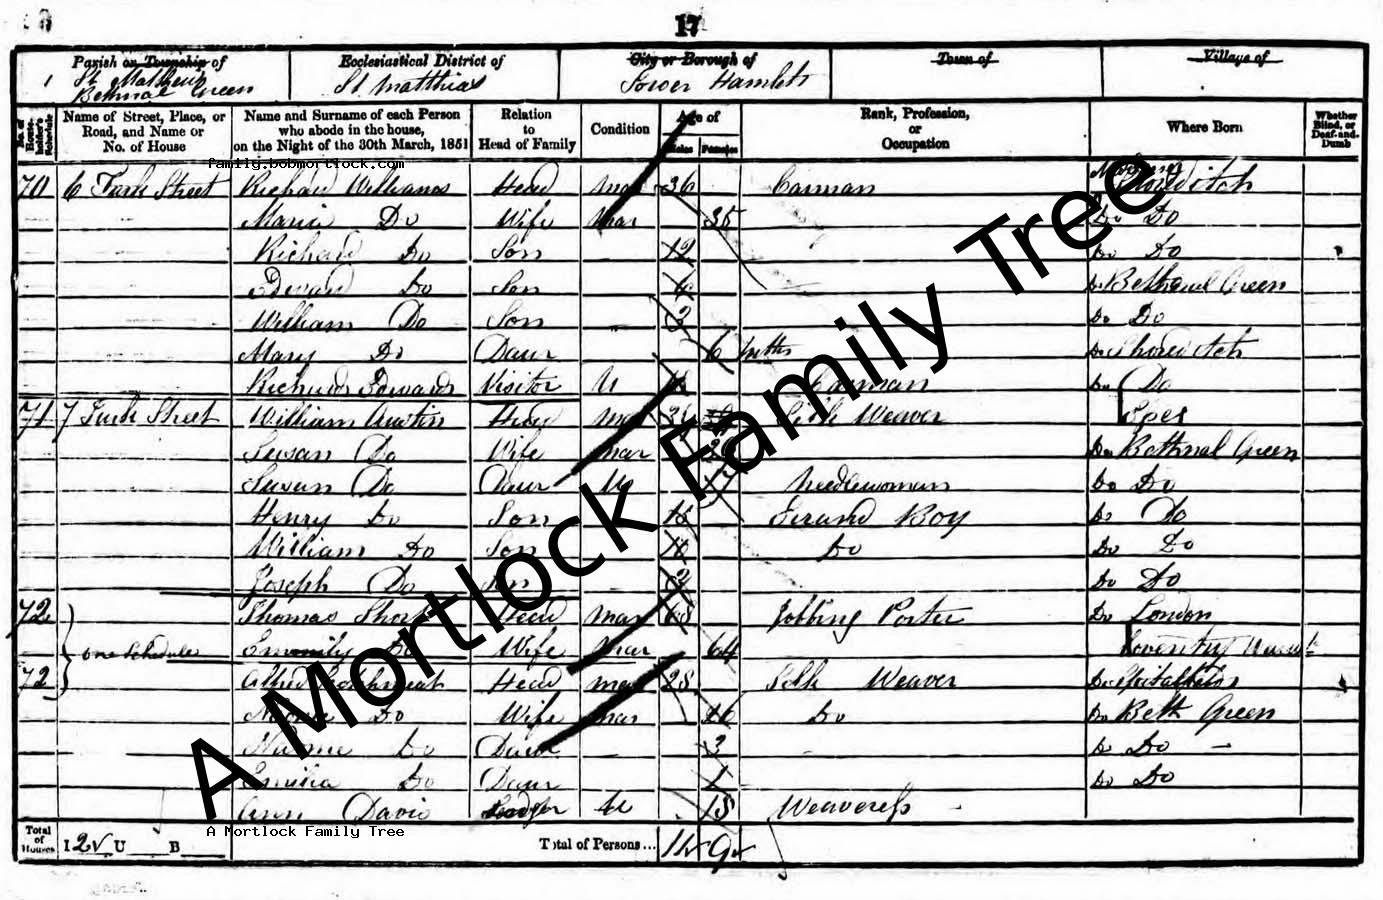 17
Parish or Township of
Ecclesiastical District of
City or Borough of
Town of
Village of
St. Matthew
Bethnal Green
St. Matthias
Tower Hamlets
No. of House-holder's Schedule
Name of Street, Place, or Road, and Name or No. of House
Name and Surname of each Person who abode in the house, on the Night of the 30th March, 1851
Relation to Head of Family
Condition
Age of
Males
Females
Rank, Profession, or Occupation
Where Born
Whether Blind, or Deaf-and-Dumb
family.bobmortlock.com
70 6 Turk Street Richard Williams Head Mar 36 Carman Shoreditch
Maria Do Wife Mar 35 Do Do
Richard Do Son 12 Do Do
Edward Do Son Do Bethnal Green
William Do Son 3 Do Do
Mary Do Daur 6 mths Do Shoreditch
Richard Edwards Visitor U Carman Do Do
71 7 Turk Street William Austin Head Mar Silk Weaver
Susan Do Wife Mar Do Bethnal Green
Susan Do Daur U Needlewoman Do Do
Henry Do Son Errand Boy Do Do
William Do Son 10 Do Do Do
Joseph Do Son Do Do
72 Thomas Short Head Mar Jobbing Porter Do London
one Schedule Emmily Do Wife Mar 64 Coventry
72 Head Mar 28 Silk Weaver Do Spitalfields
Do Wife Mar 26 Do Do Beth Green
Do Daur 3 Do Do
Emilia Do Daur 1 Do Do
Ann Davis Lodger U 18 Weaveress
A Mortlock Family Tree
A Mortlock Family Tree
Total of Houses I 2 U B Total of Persons... 11 9